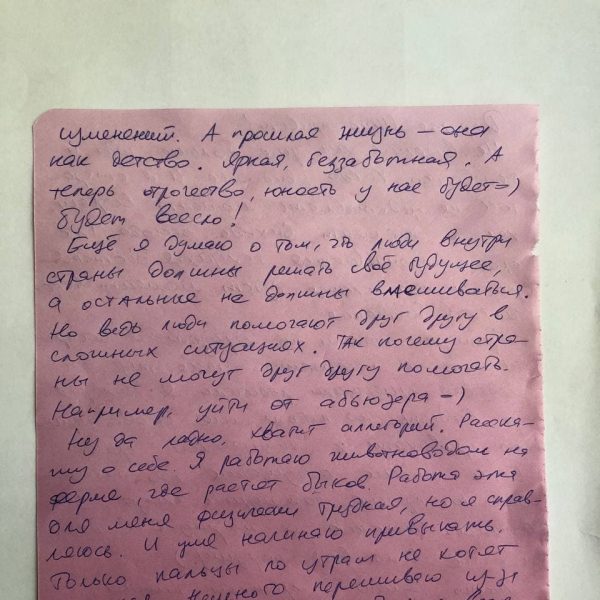 изменений. А прошлая жизнь – она
как детство. Яркая, беззаботная. А
теперь отрочество, юность у нас будет =)
Будет весело!
Ещё я думаю о том, что люди внутри
страны должны решать своё будущее,
а остальные не должны вмешиваться.
Но ведь люди помогают друг другу в
сложных ситуациях. Так почему стра-
ны не могут друг другу помогать.
Например, уйти от абьюзера =)
Ну да ладно, хватит аллегорий. Расска-
жу о себе. Я работаю животноводом на
ферме, где растят быков. Работа эта
для меня физически трудная, но я справ-
ляюсь. И уже начинаю привыкать.
Только пальцы по утрам не хотят
немного переживаю из-за